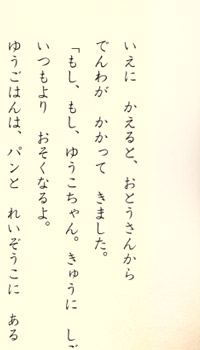 いえに　かえると、おとうさんから
でんわが　かかって　きました。
「もし、もし、ゆうこちゃん。きゅうに　し
いつもより　おそくなるよ。
ゆうごはんは、パンと　れいぞうこに　ある